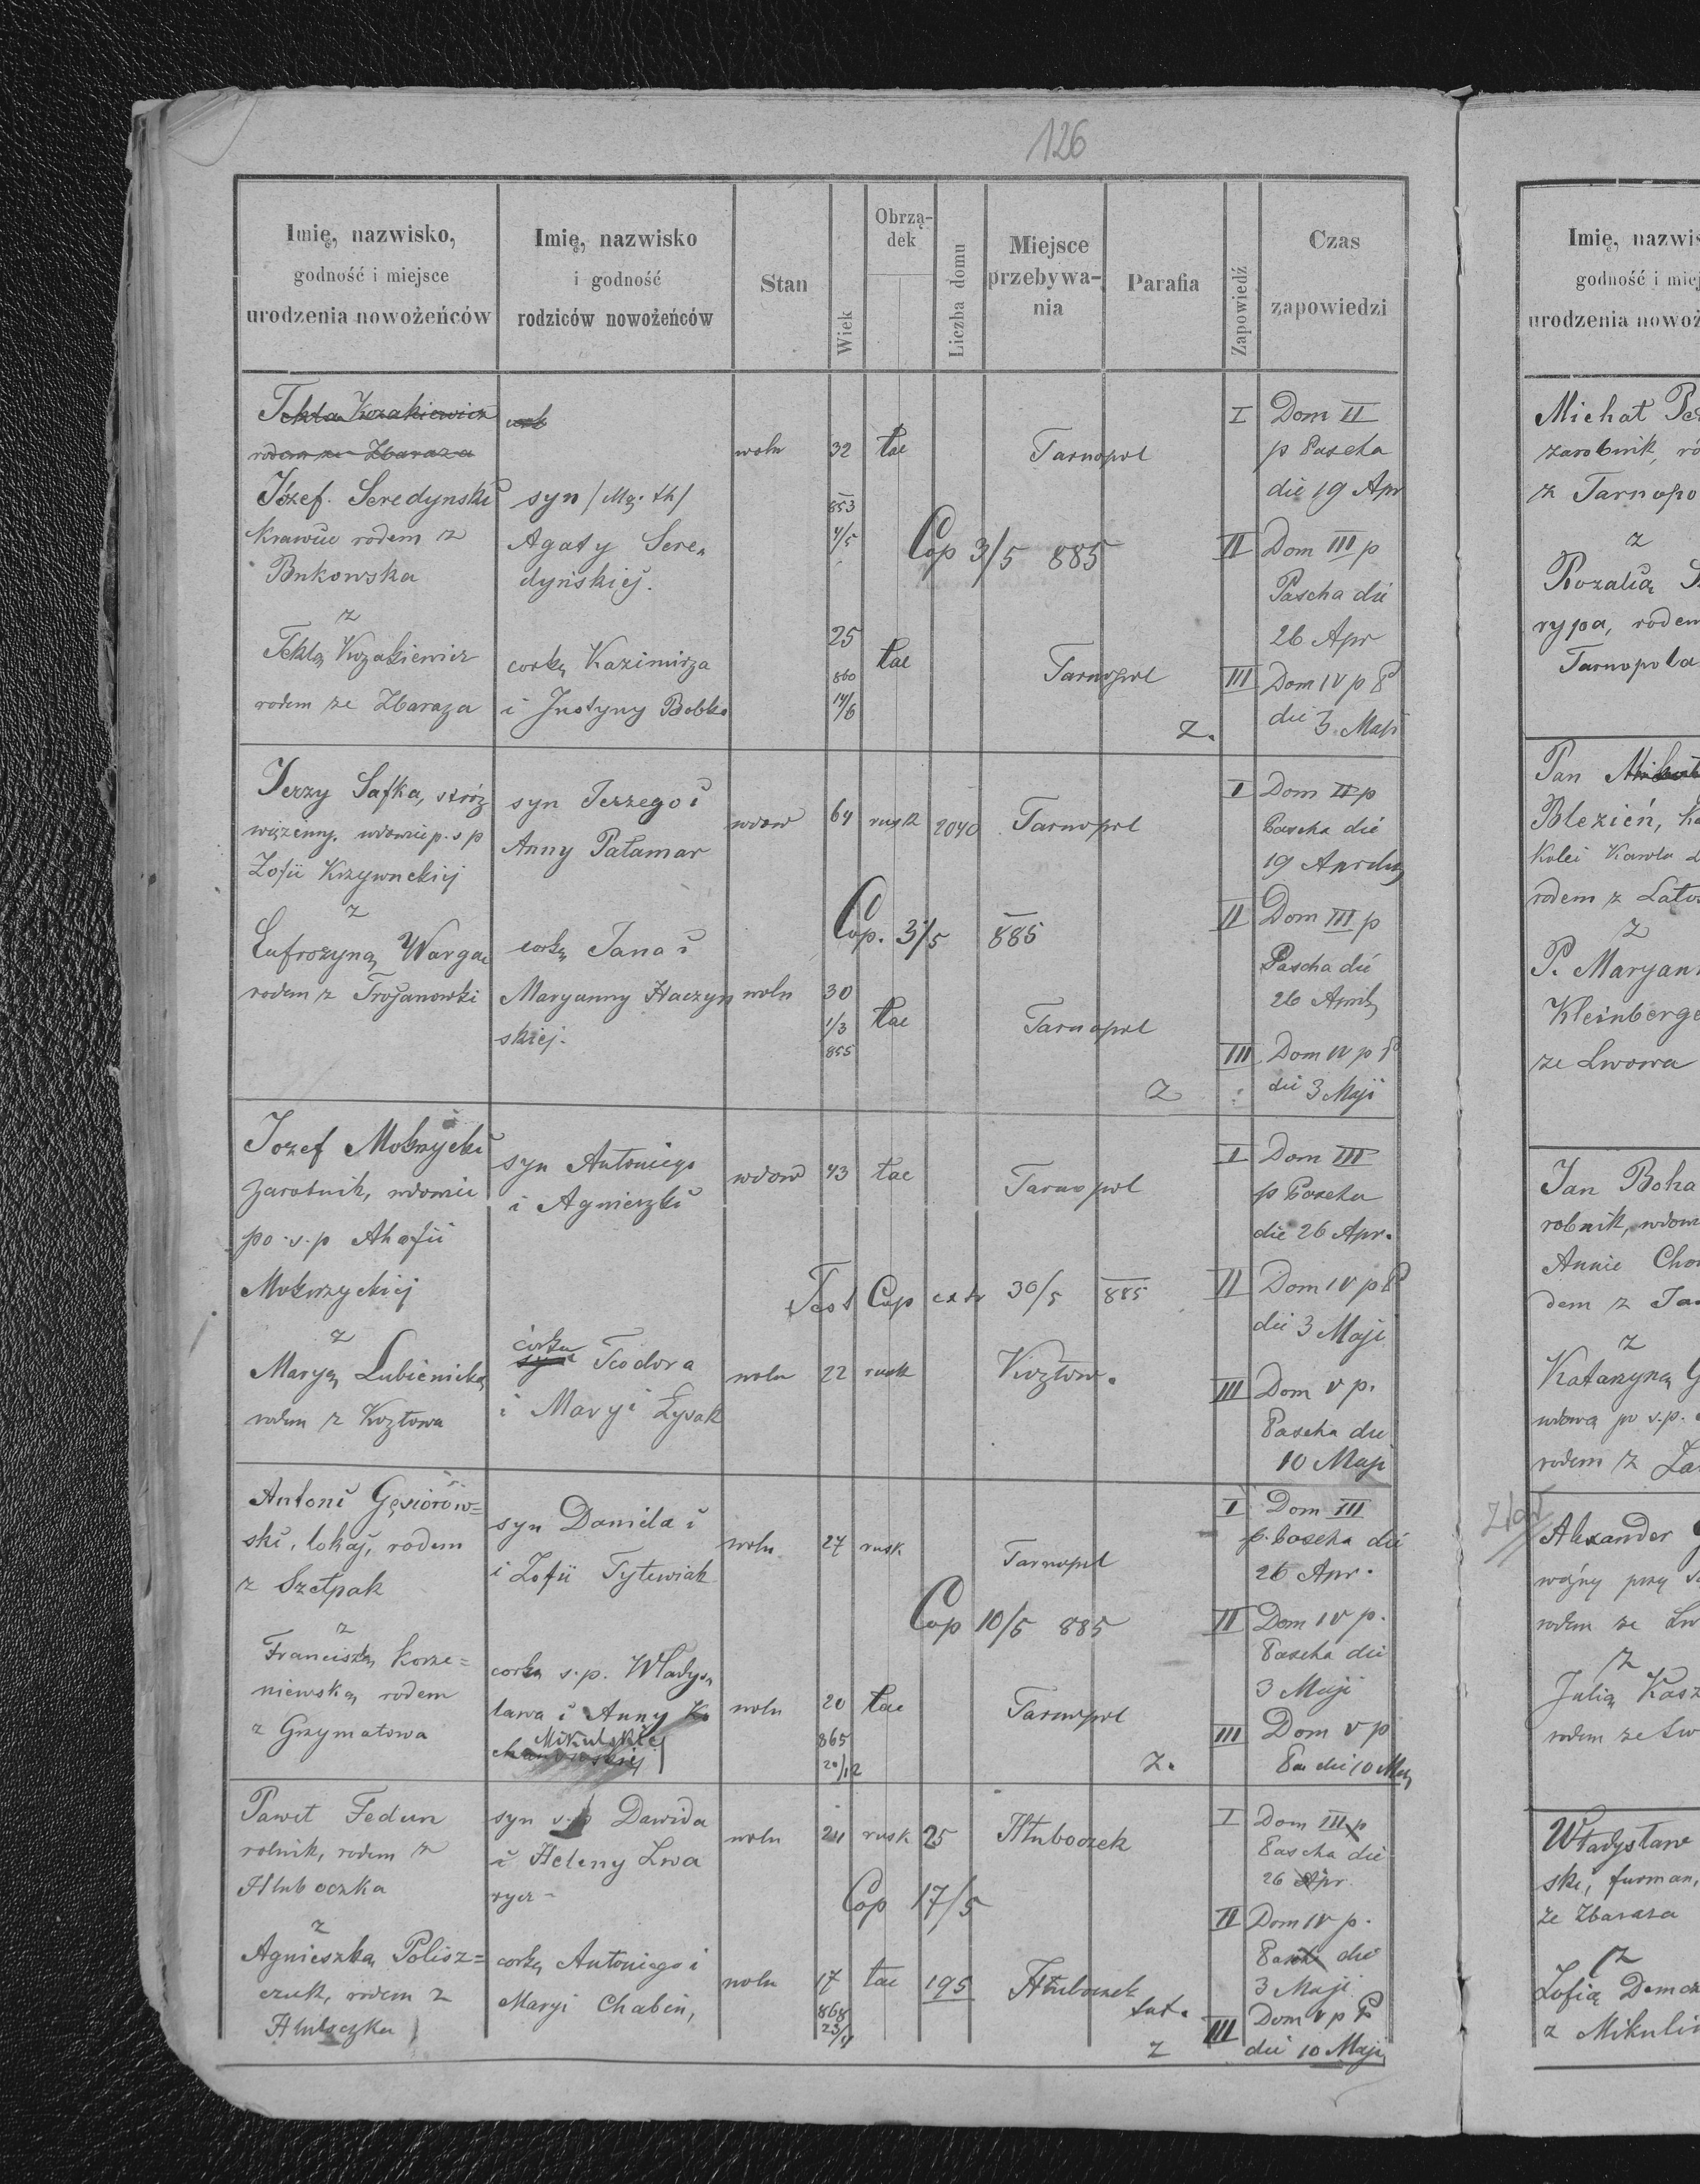 126
Imię, nazwisko,
godność i miejsce
urodzenia nowożeńców
Imię, nazwisko
i godność
rodziców nowożeńców
Stan
Wiek
Obrzą-
dek
Liczba domu
Miejsce
przebywa-
nia
Parafia
Zapowiedź
Czas
zapowiedzi
Tekla Kozakiewicz
rodem ze Zbaraza
Józef Seredynski
Krawiec rodem z
Bukowska
z
Teklą Kozakiewicz
rodem ze Zbaraza
syn
Agaty Sere-
dyńskiej.
corką Kazimirza
i Justyny Bobko
woln 32 łac Tarnopol
853
4/5
Cop 3/5 885
25
860
14/6
łac Tarnopol
Z.
I Dom II
p Pascha
die 19 Apr
II Dom III p
Pascha die
26 Apr
III Dom IV p P
die 3 Maji
Jerzy Safka, stróż
więzenny, wdowiec p. s p
Zofii Krzywuckiej
z
Eufrozyną Warga
rodem z Trojanowki
syn Jerzego i
Anny Pałamar
corką Jana i
Maryanny Haczyn
skiej.
wdow 64 rusk 2040 Tarnopol
Cop. 3/5 885
woln 30
1/3
855
łac Tarnopol
Z
I Dom II p
Pascha die
19 Aprilis
II Dom III p
Pascha die
26 April
III Dom IV p P
die 3 Maji
Jozef Mokrzycki
Zarobnik, wdowiec
po s.p Ahafii
Mokrzyckiej
z
Maryą Lubienicką
rodem z Kozłowa
syn Antoniego
i Agnieszki
corka
syn Teodora
i Maryi Łysak
wdow 43 łac Tarnopol
Test Cop extr 30/5 885
woln 22 rusk Kozłow.
I Dom III
p Pascha
die 26 Apr.
II Dom IV p P
die 3 Maji
III Dom V p.
Pascha die
10 Maji
Antoni Gęsiorow=
ski, lokaj, rodem
z Szełpak
z
Franciszką Korze=
niewską rodem
z Grzymałowa
syn Daniela i
i Zofii Tytewiak
corka s.p. Włady-
ława i Anny Ko
Mikulskiej
woln 27 rusk Tarnopol
Cop 10/5 885
woln 20 łac Tarnopol
865
20/12
Z.
I Dom III
p. Pascha die
26 Apr.
II Dom IV p.
Pascha die
3 Maji
III Dom V p
Pas die 10 Maj
Paweł Fedun
rolnik, rodem z
Hluboczka
z
Agnieszką Polisz=
czuk, rodem z
Hluboczka
syn s.p Dawida
i Heleny Ława
rycz-
corką Antoniego i
Maryi Chabin,
woln 24 rusk 25 Hłuboczek
Cop 17/5
woln 17 łac 195 Hłuboczek
868
Z
I Dom III p
Pascha die
26 Apr.
II Dom IV p.
Pascha die
3 Maji
III Dom V p P
die 10 Maji
Imię, nazwis
godność i miej
urodzenia nowoż
Michał
zarobnik, ro
z Tarnopo
z
Rozalią
rypa, rodem
Tarnopola
Pan
Blezień,
Kolei Karola
rodem z Lato
z
P. Maryan
Kleinberge
ze Lwowa
Jan Boha
robnik, wdow
Annie Cho
dem z
z
Katarzyną
wdową po s.p.
rodem z
Alexander
woźny przy
rodem ze Lw
z
Julią Kasz
rodem ze Lw
Władysław
ski, furman,
ze Zbaraza
z
Zofią
z Mikuli